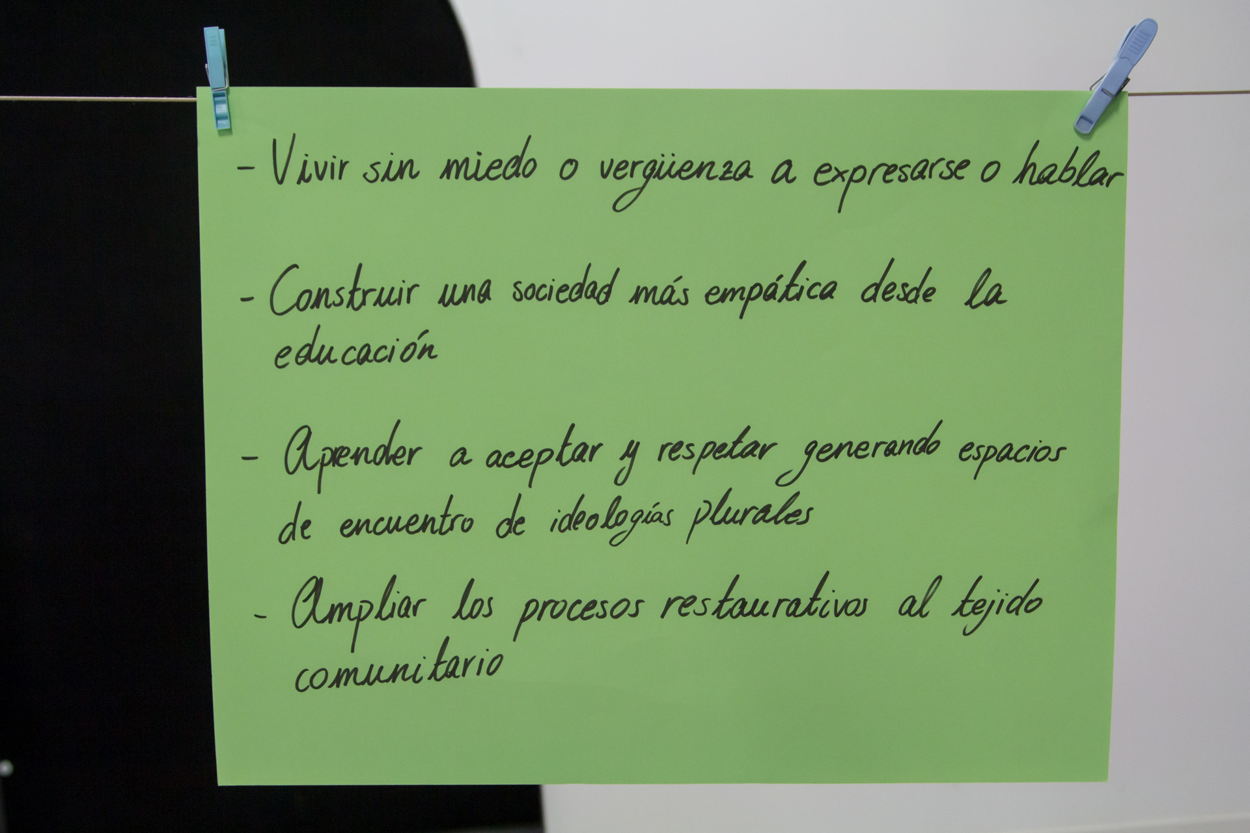 - Vivir sin miedo o vergüenza a expresarse o hablar
- Construir una sociedad más empática desde la
educación
- Aprender a aceptar y respetar generando espacios
de encuentro de ideologías plurales
- Ampliar los procesos restaurativos al tejido
comunitario